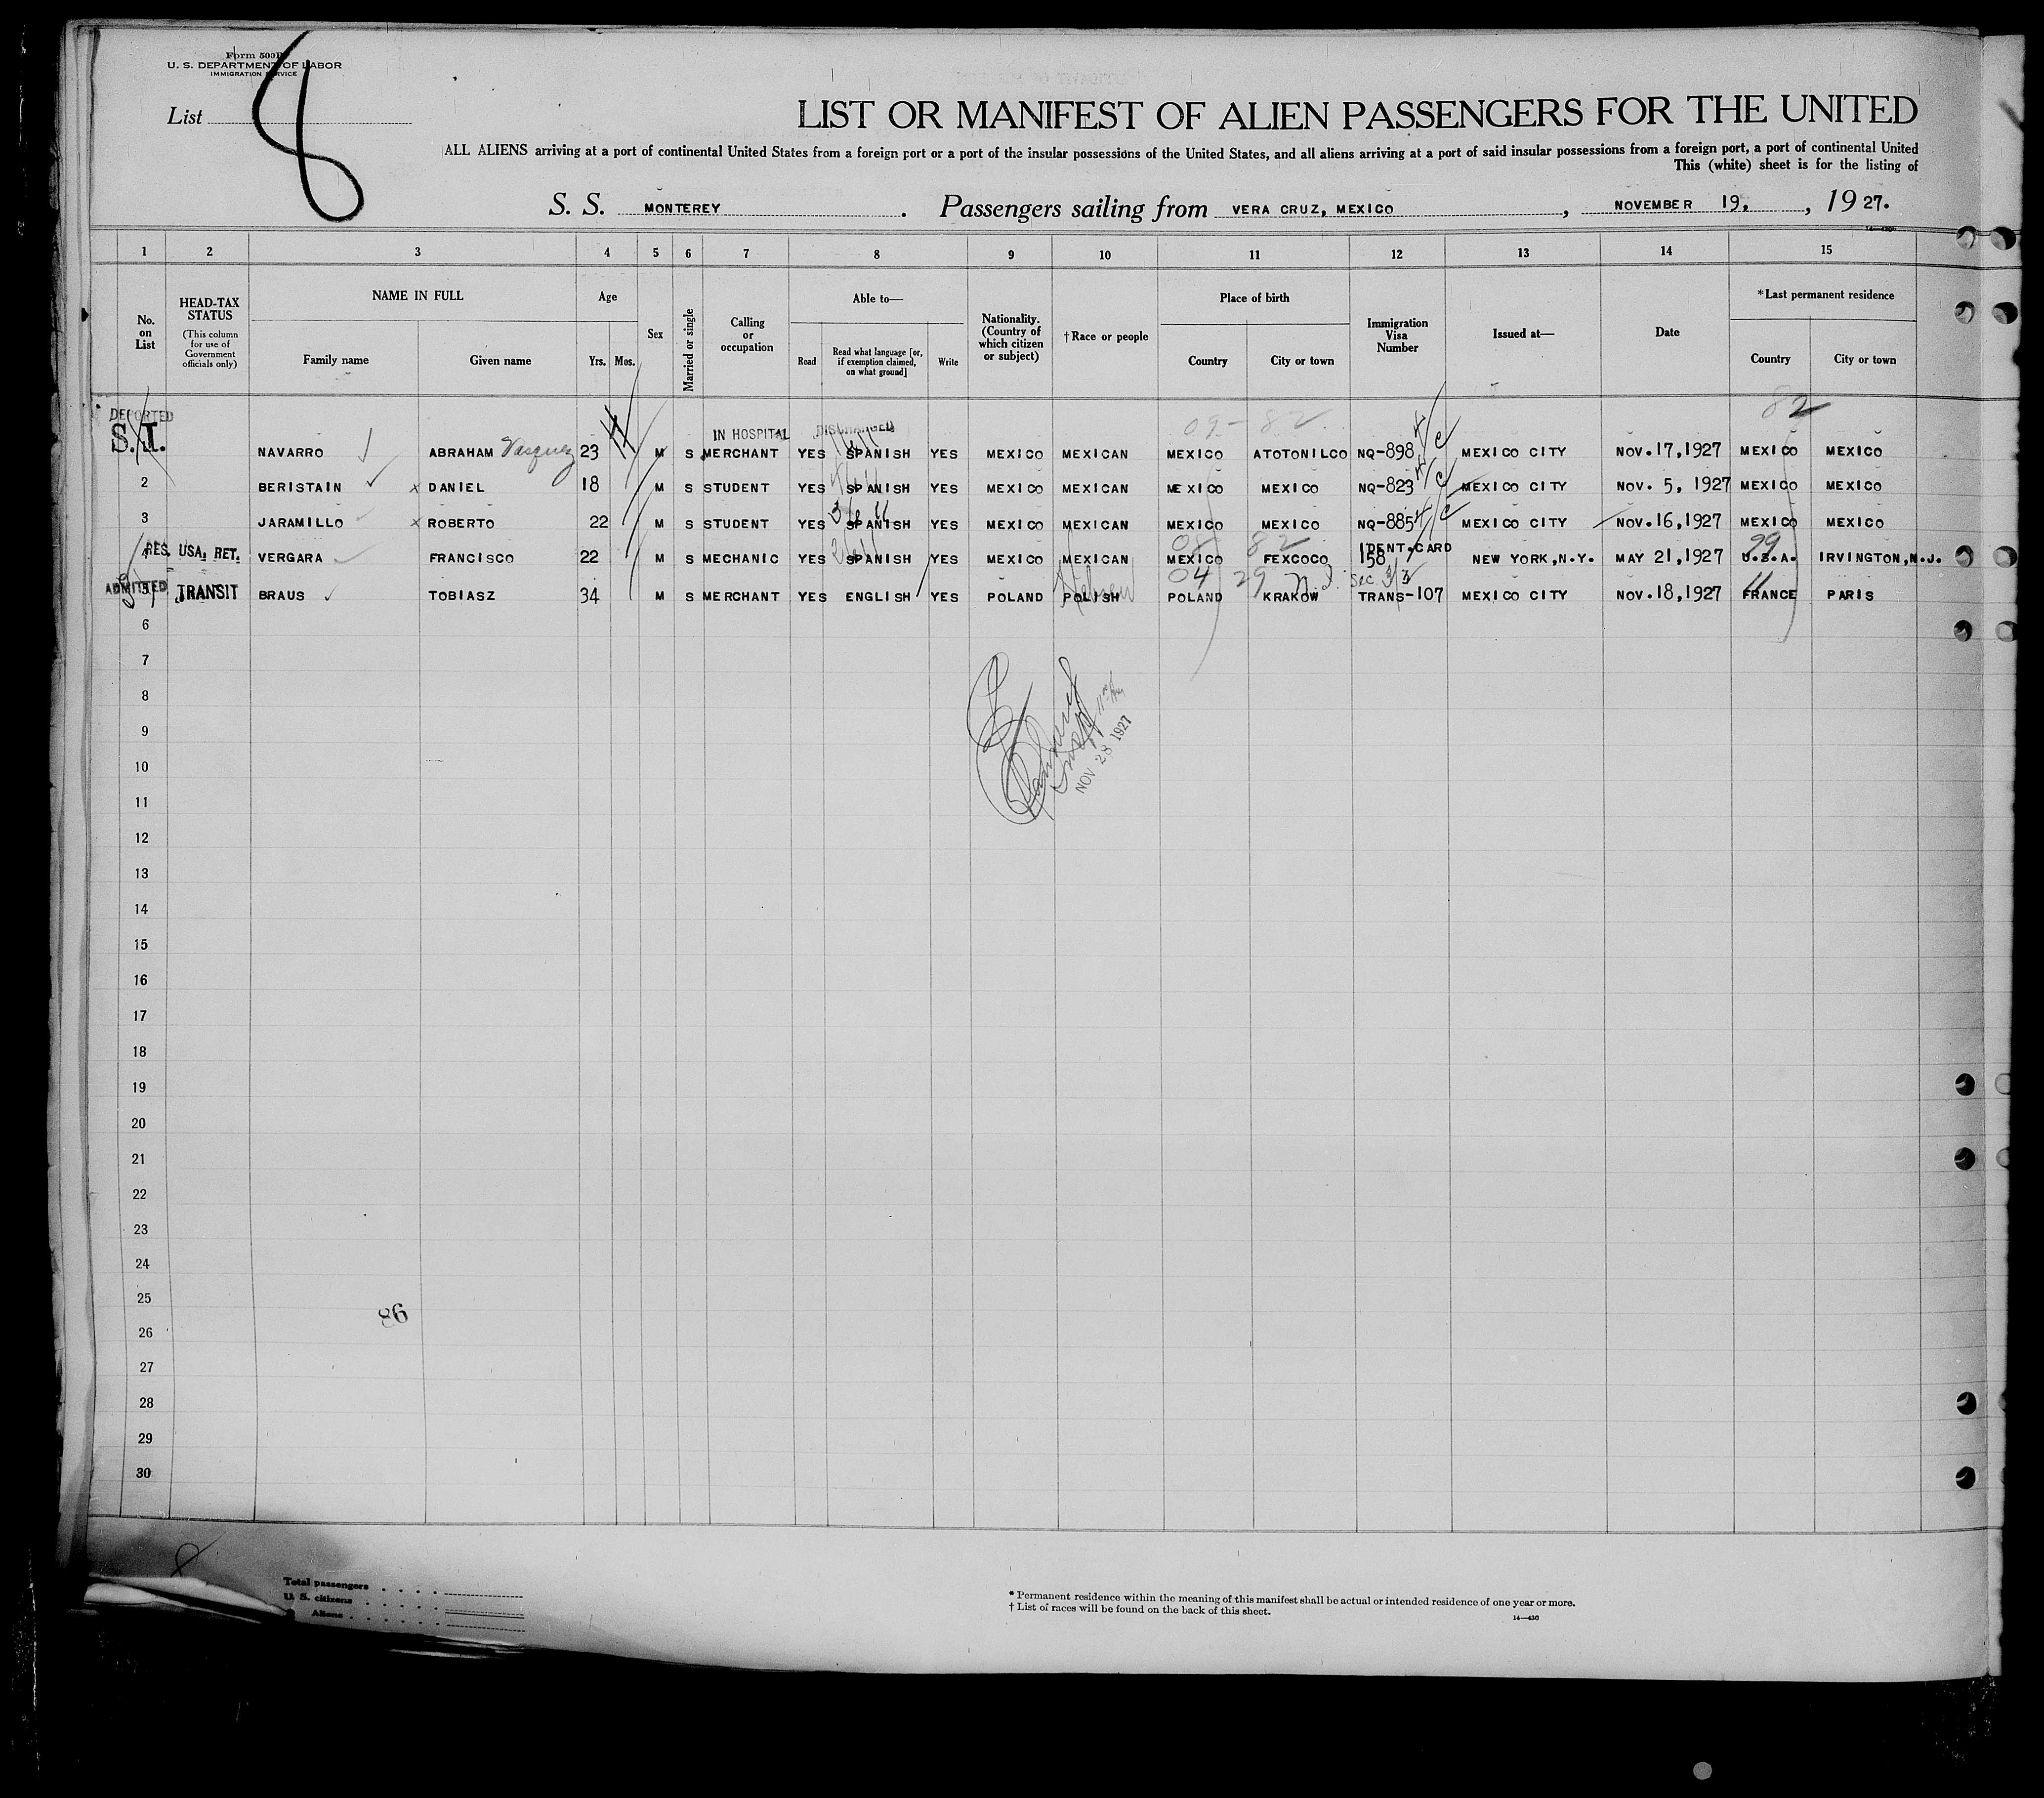 Form 500B
U. S. DEPARTMENT OF LABOR
IMMIGRATION SERVICE
List 8
LIST OR MANIFEST OF ALIEN PASSENGERS FOR THE UNITED
ALL ALIENS arriving at a port of continental United States from a foreign port or a port of the insular possessions of the United States, and all aliens arriving at a port of said insular possessions from a foreign port, a port of continental United
This (white) sheet is for the listing of
S. S. MONTEREY. Passengers sailing from VERA CRUZ, MEXICO, NOVEMBER 19, , 1927.
1 2 3 4 5 6 7 8 9 10 11 12 13 14 15
No. on List
HEAD-TAX STATUS (This column for use of Government officials only)
NAME IN FULL Family name Given name
Age Yrs. Mos.
Sex
Married or single
Calling or occupation
Able to— Read Read what language [or, if exemption claimed, on what ground] Write
Nationality. (Country of which citizen or subject)
†Race or people
Place of birth Country City or town
Immigration Visa Number
Issued at—
Date
*Last permanent residence Country City or town
DEPORTED IN HOSPITAL DISCHARGED 09- 82 82
S.I. NAVARRO ABRAHAM Vasquez 23 M S MERCHANT YES SPANISH YES MEXICO MEXICAN MEXICO ATOTONILCO NQ-898 MEXICO CITY NOV.17,1927 MEXICO MEXICO
2 BERISTAIN x DANIEL 18 M S STUDENT YES SPANISH YES MEXICO MEXICAN MEXICO MEXICO NQ-823 MEXICO CITY NOV. 5, 1927 MEXICO MEXICO
3 JARAMILLO x ROBERTO 22 M S STUDENT YES SPANISH YES MEXICO MEXICAN MEXICO MEXICO NQ-885 MEXICO CITY NOV.16,1927 MEXICO MEXICO
08 82 IDENT.CARD 99
4 RES. USA. RET. VERGARA FRANCISCO 22 M S MECHANIC YES SPANISH YES MEXICO MEXICAN MEXICO FEXCOCO 158 NEW YORK,N.Y. MAY 21,1927 U.S.A. IRVINGTON,N.J.
ADMITTED Hebrew 04 29 Sec 3/3 11
5 TRANSIT BRAUS TOBIASZ 34 M S MERCHANT YES ENGLISH YES POLAND POLISH POLAND KRAKOW TRANS-107 MEXICO CITY NOV.18,1927 FRANCE PARIS
6
7
8
9
NOV 28 1927
10
11
12
13
14
15
16
17
18
19
20
21
22
23
24
25
86
26
27
28
29
30
8
Total passengers
U. S. citizens
Aliens
* Permanent residence within the meaning of this manifest shall be actual or intended residence of one year or more.
† List of races will be found on the back of this sheet.
14—430